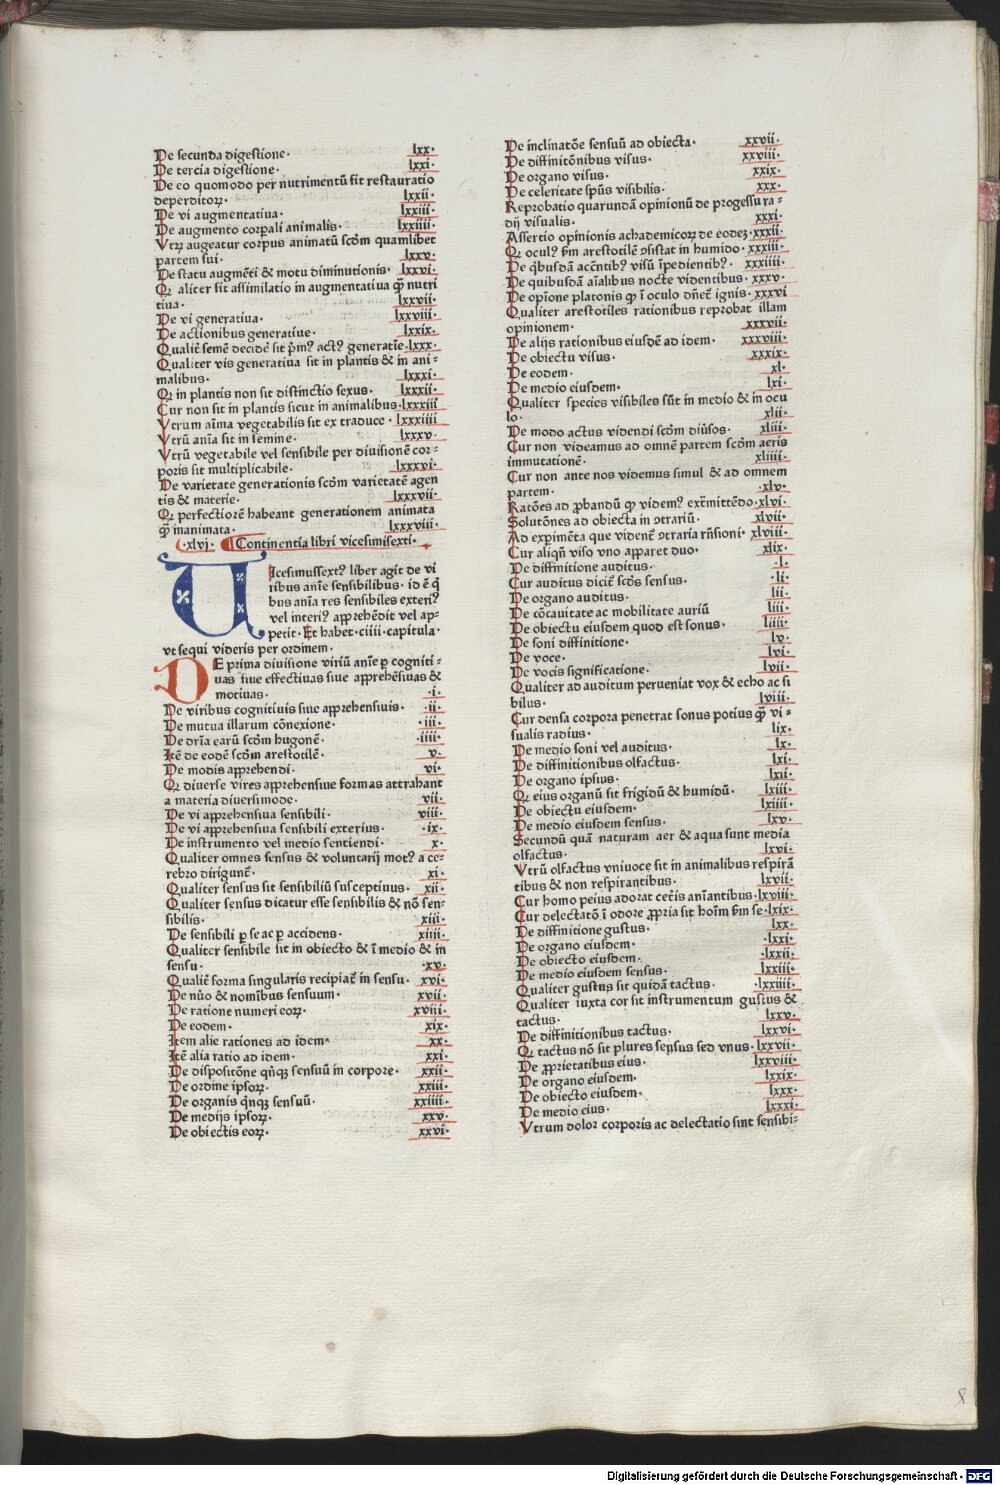 De secunda digestione· lxx·
De tercia digestione· lxxi·
De eo quomodo per nutrimentũ fit restauratio
deperditoꝝ· lxxii·
De vi augmentatiua· lxxiii·
De augmento corꝑali animalis· lxxiiii·
Vtrꝫ augeatur corpus animatũ scd̃m quamlibet
partem sui· lxxv·
De statu augmẽti & motu diminutionis· lxxvi·
Qꝛ aliter fit assimilatio in augmentatiua q̃ꝫ nutri
tiua· lxxvii·
De vi generatiua· lxxviii·
De actionibus generatiue· lxxix·
Qualit̃ semẽ decidẽs sit p̃mꝰ actꝰ generatiẽ· lxxx·
Qualiter vis generatiua sit in plantis & in ani-
malibus· lxxxi·
Qꝛ in plantis non sit distinctio sexus· lxxxii·
Cur non sit in plantis sicut in animalibus· lxxxiii
Vtrum aĩma vegetabilis sit ex traduce· lxxxiiii
Vtrũ anĩa sit in semine· lxxxv·
Vtrũ vegetabile vel sensibile per diuisionẽ cor-
poris sit multiplicabile· lxxxvi·
De varietate generationis scd̃m varietatẽ agen
tis & materie· lxxxvii·
Qꝛ perfectiorẽ habeant generationem animata
q̃ꝫ inanimata· lxxxviii·
·xlvj· Continentia libri vicesimisexti·
VIcesimussextꝰ liber agit de vi
ribus anĩe sensibilibus· id ẽ q̃
bus anĩa res sensibiles exteriꝰ
vel interiꝰ apprehẽdit vel ap-
petit· Et habet·ciiii·capitula·
vt sequi videris per ordinem·
DE prima diuisione viriũ anĩe ꝑ cogniti-
uas siue effectiuas siue apprehẽsiuas &
motiuas· ·i·
De viribus cognitiuis siue apprehensiuis· ·ii·
De mutua illarum cõnexione· ·iii·
De drĩa earũ scd̃m hugonẽ· ·iiii·
Itẽ de eodẽ scd̃m arestotilẽ· v·
De modis apprehendi· vi·
Qꝛ diuerse vires apprehensiue formas attrahant
a materia diuersimode· vii·
De vi apprehensiua sensibili· viii·
De vi apprehensiua sensibili exterius· ·ix·
De instrumento vel medio sentiendi· x·
Qualiter omnes sensus & voluntarij motꝰ a ce-
rebro dirigunt̃· xi·
Qualiter sensus sit sensibiliũ susceptiuus· xii·
Qualiter sensus dicatur esse sensibilis & nõ sen-
sibilis· xiii·
De sensibili ꝑ se ac ꝑ accidens· xiiii·
Qualiter sensibile sit in obiecto & ĩ medio & in
sensu· ·xv·
Qualit̃ forma singularis recipiat̃ in sensu· xvi·
De nũo & nomĩbus sensuum· xvii·
De ratione numeri eoꝝ· xviii·
De eodem· xix·
Item alie rationes ad idem· xx·
Itẽ alia ratio ad idem· xxi·
De dispositõne qñqꝫ sensuũ in corpore· xxii·
De ordine ipsoꝝ· xxiii·
De organis q̃nqꝫ sensuũ· xxiiii·
De medijs ipsoꝝ· xxv·
De obiectis eoꝝ· xxvi·
De inclinatõe sensuũ ad obiecta· xxvii·
De diffinitõnibus visus· xxviii·
De organo visus· xxix·
De celeritate spũs visibilis· xxx·
Reprobatio quarundã opinionũ de progessu ra-
dij visualis· xxxi·
Assertio opinionis achademicoꝝ de eodeꝫ· xxxii·
Qꝛ oculꝰ s̃m arestotilẽ ↄsistat in humido· xxxiii·
De q̃busdã accñtibꝰ visũ ĩpedientibꝰ· xxxiiii·
De quibusdã aĩalibus nocte videntibus· xxxv·
De opĩone platonis qꝛ ĩ oculo dñet̃ ignis· xxxvi
Qualiter arestotiles rationibus reprobat illam
opinionem· xxxvii·
De alijs rationibus eiusdẽ ad idem· xxxviii·
De obiectu visus· xxxix·
De eodem· xl·
De medio eiusdem· lxi·
Qualiter species visibiles sũt in medio & in ocu
lo· xlii·
De modo actus videndi scd̃m diũsos· xliii·
Cur non videamus ad omnẽ partem scd̃m aeris
immutationẽ· xliiii·
Cur non ante nos videmus simul & ad omnem
partem· ·xlv·
Ratões ad ꝓbandũ qꝛ videmꝰ extr̃mittẽdo· xlvi·
Solutõnes ad obiecta in ↄtrariũ· xlvii·
Ad experimẽta que videnẽ ↄtraria rñsioni· xlviii·
Cur aliqñ viso vno apparet duo· xlix·
De diffinitione auditus· ·l·
Cur auditus dicit̃ scd̃s sensus· ·li·
De organo auditus· lii·
De cõcauitate ac mobilitate auriũ liii·
De obiectu eiusdem quod est sonus· liiii·
De soni diffinitione· lv·
De voce· lvi·
De vocis significatione· lvii·
Qualiter ad auditum perueniat vox & echo ac si
bilus· lviii·
Cur densa corpora penetrat sonus potius q̃ꝫ vi-
sualis radius· lix·
De medio soni vel auditus· lx·
De diffinitionibus olfactus· lxi·
De organo ipsius· lxii·
Qꝛ eius organũ sit frigidũ & humidũ· lxiii·
De obiectu eiusdem· lxiiii·
De medio eiusdem sensus· lxv·
Secundũ quã naturam aer & aqua sunt media
olfactus· lxvi·
Vtrũ olfactus vniuoce sit in animalibus respirã
tibus & non respirantibus· lxvii·
Cur homo peius adorat cet̃is anĩantibus· lxviii·
Cur delectatõ ĩ odore ꝓpria sit hoĩm s̃m se· lxix·
De diffinitione gustus· lxx·
De organo eiusdem· ·lxxi·
De obiecto eiusdem· ·lxxii·
De medio eiusdem sensus· lxxiii·
Qualiter gustus sit quidã tactus· ·lxxiiii·
Qualiter iuxta cor sit instrumentum gustus &
tactus· lxxv·
De diffinitionibus tactus· lxxvi·
Qꝛ tactus nõ sit plures sensus sed vnus· lxxvii·
De ꝓprietatibus eius· lxxviii·
De organo eiusdem· lxxix·
De obiecto eiusdem· lxxx·
De medio eius· lxxxi·
Vtrum dolor corporis ac delectatio sint sensibi-
Digitalisierung gefördert durch die Deutsche Forschungsgemeinschaft · DFG